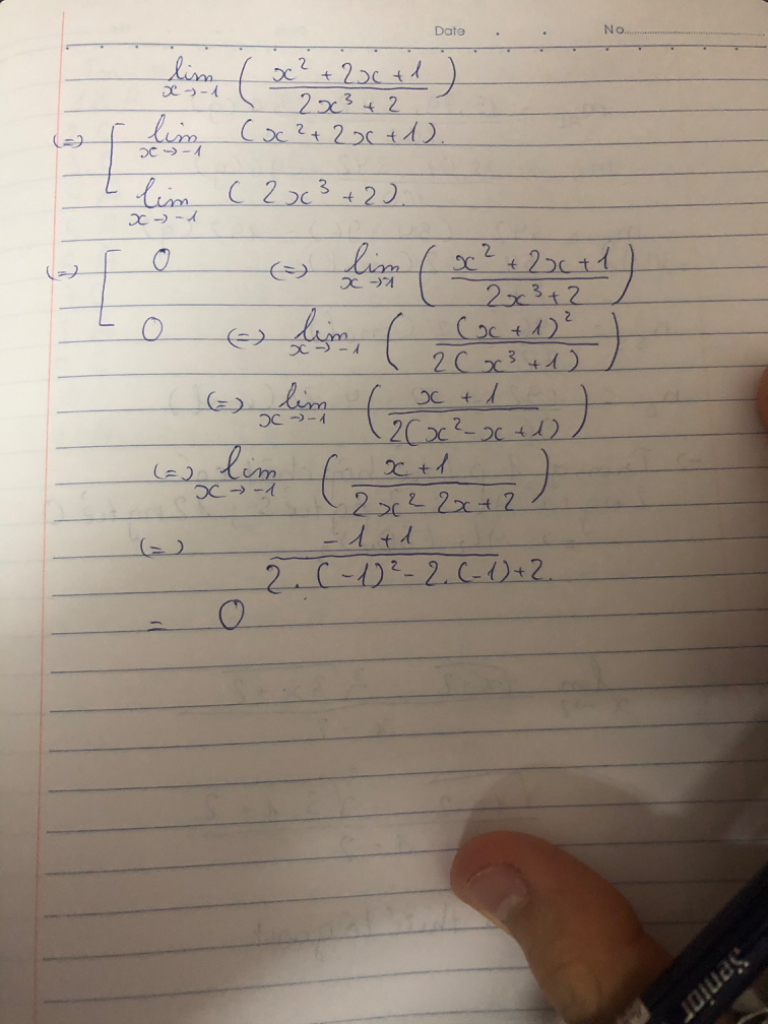 Date . . No.
lim x→-1 ( (x² + 2x + 1) / (2x³ + 2) )
(=) [ lim x→-1 (x² + 2x + 1).
lim x→-1 (2x³ + 2).
(=) [ 0 (=) lim x→1 ( (x² + 2x + 1) / (2x³ + 2) )
0 (=) lim x→-1 ( (x + 1)² / (2(x³ + 1)) )
(=) lim x→-1 ( (x + 1) / (2(x² - x + 1)) )
(=) lim x→-1 ( (x + 1) / (2x² - 2x + 2) )
(=) (-1 + 1) / (2 . (-1)² - 2. (-1) + 2.)
= 0
Senior